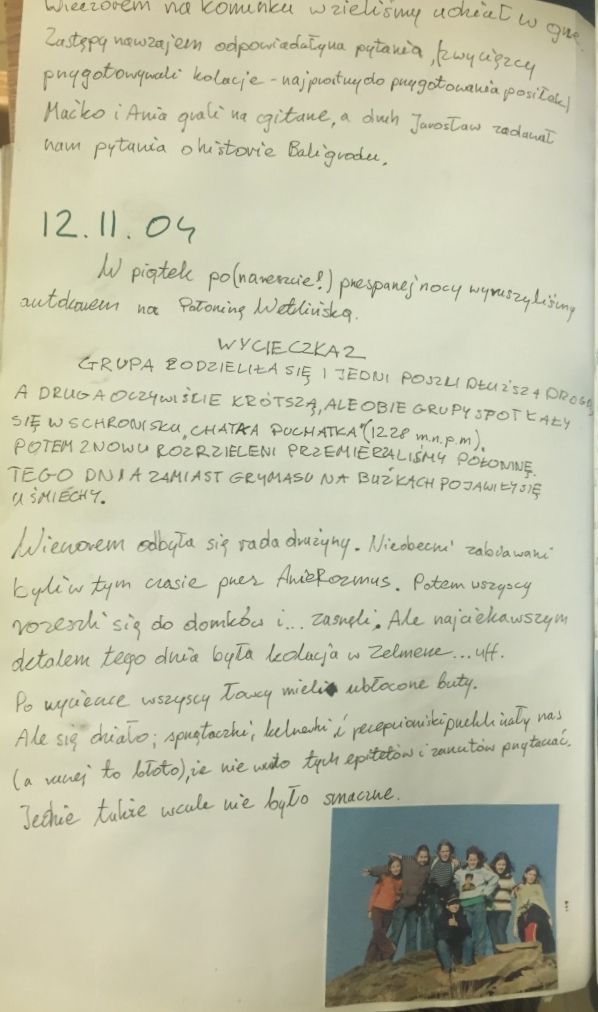 Wieczorem na kominku wzieliśmy udział w grze.
Zastępy nawzajem odpowiadały na pytania, (zwycięzcy
przygotowywali kolacje - najprostrzy do przygotowania posiłek)
Maćko i Ania grali na gitarze, a druh Jarosław zadawał
nam pytania o historie Baligrodu.
12.11.04
W piątek po (nareszcie!) przespanej nocy wyruszyliśmy
autokarem na Połoninę Wetlińską.
WYCIECZKA 2
GRUPA ROZDZIELIŁA SIĘ I JEDNI POSZLI DŁUŻSZĄ DROGĄ
A DRUGA OCZYWIŚCIE KRÓTSZĄ, ALE OBIE GRUPY SPOTKAŁY
SIĘ W SCHRONISKU „CHATKA PUCHATKA" (1228 m.n.p.m).
POTEM ZNOWU ROZDZIELENI PRZEMIERZALIŚMY POŁONINĘ.
TEGO DNIA ZAMIAST GRYMASU NA BUŹKACH POJAWIŁY SIĘ
UŚMIECHY.
Wieczorem odbyła się rada drużyny. Nieobecni zabawiani
byli w tym czasie przez Anię Rozmus. Potem wszyscy
rozeszli się do domków i... zasnęli. Ale najciekawszym
detalem tego dnia była kolacja w Zelmerze... uff.
Po wycieczce wszyscy mieli ubłocone buty.
Ale się działo; sprzątaczki, kelnerki i recepcionistki przeklinały nas
(a raczej to błoto), że nie warto tych epitetów i zarzutów przytaczać.
Jedzenie także wcale nie było smaczne.